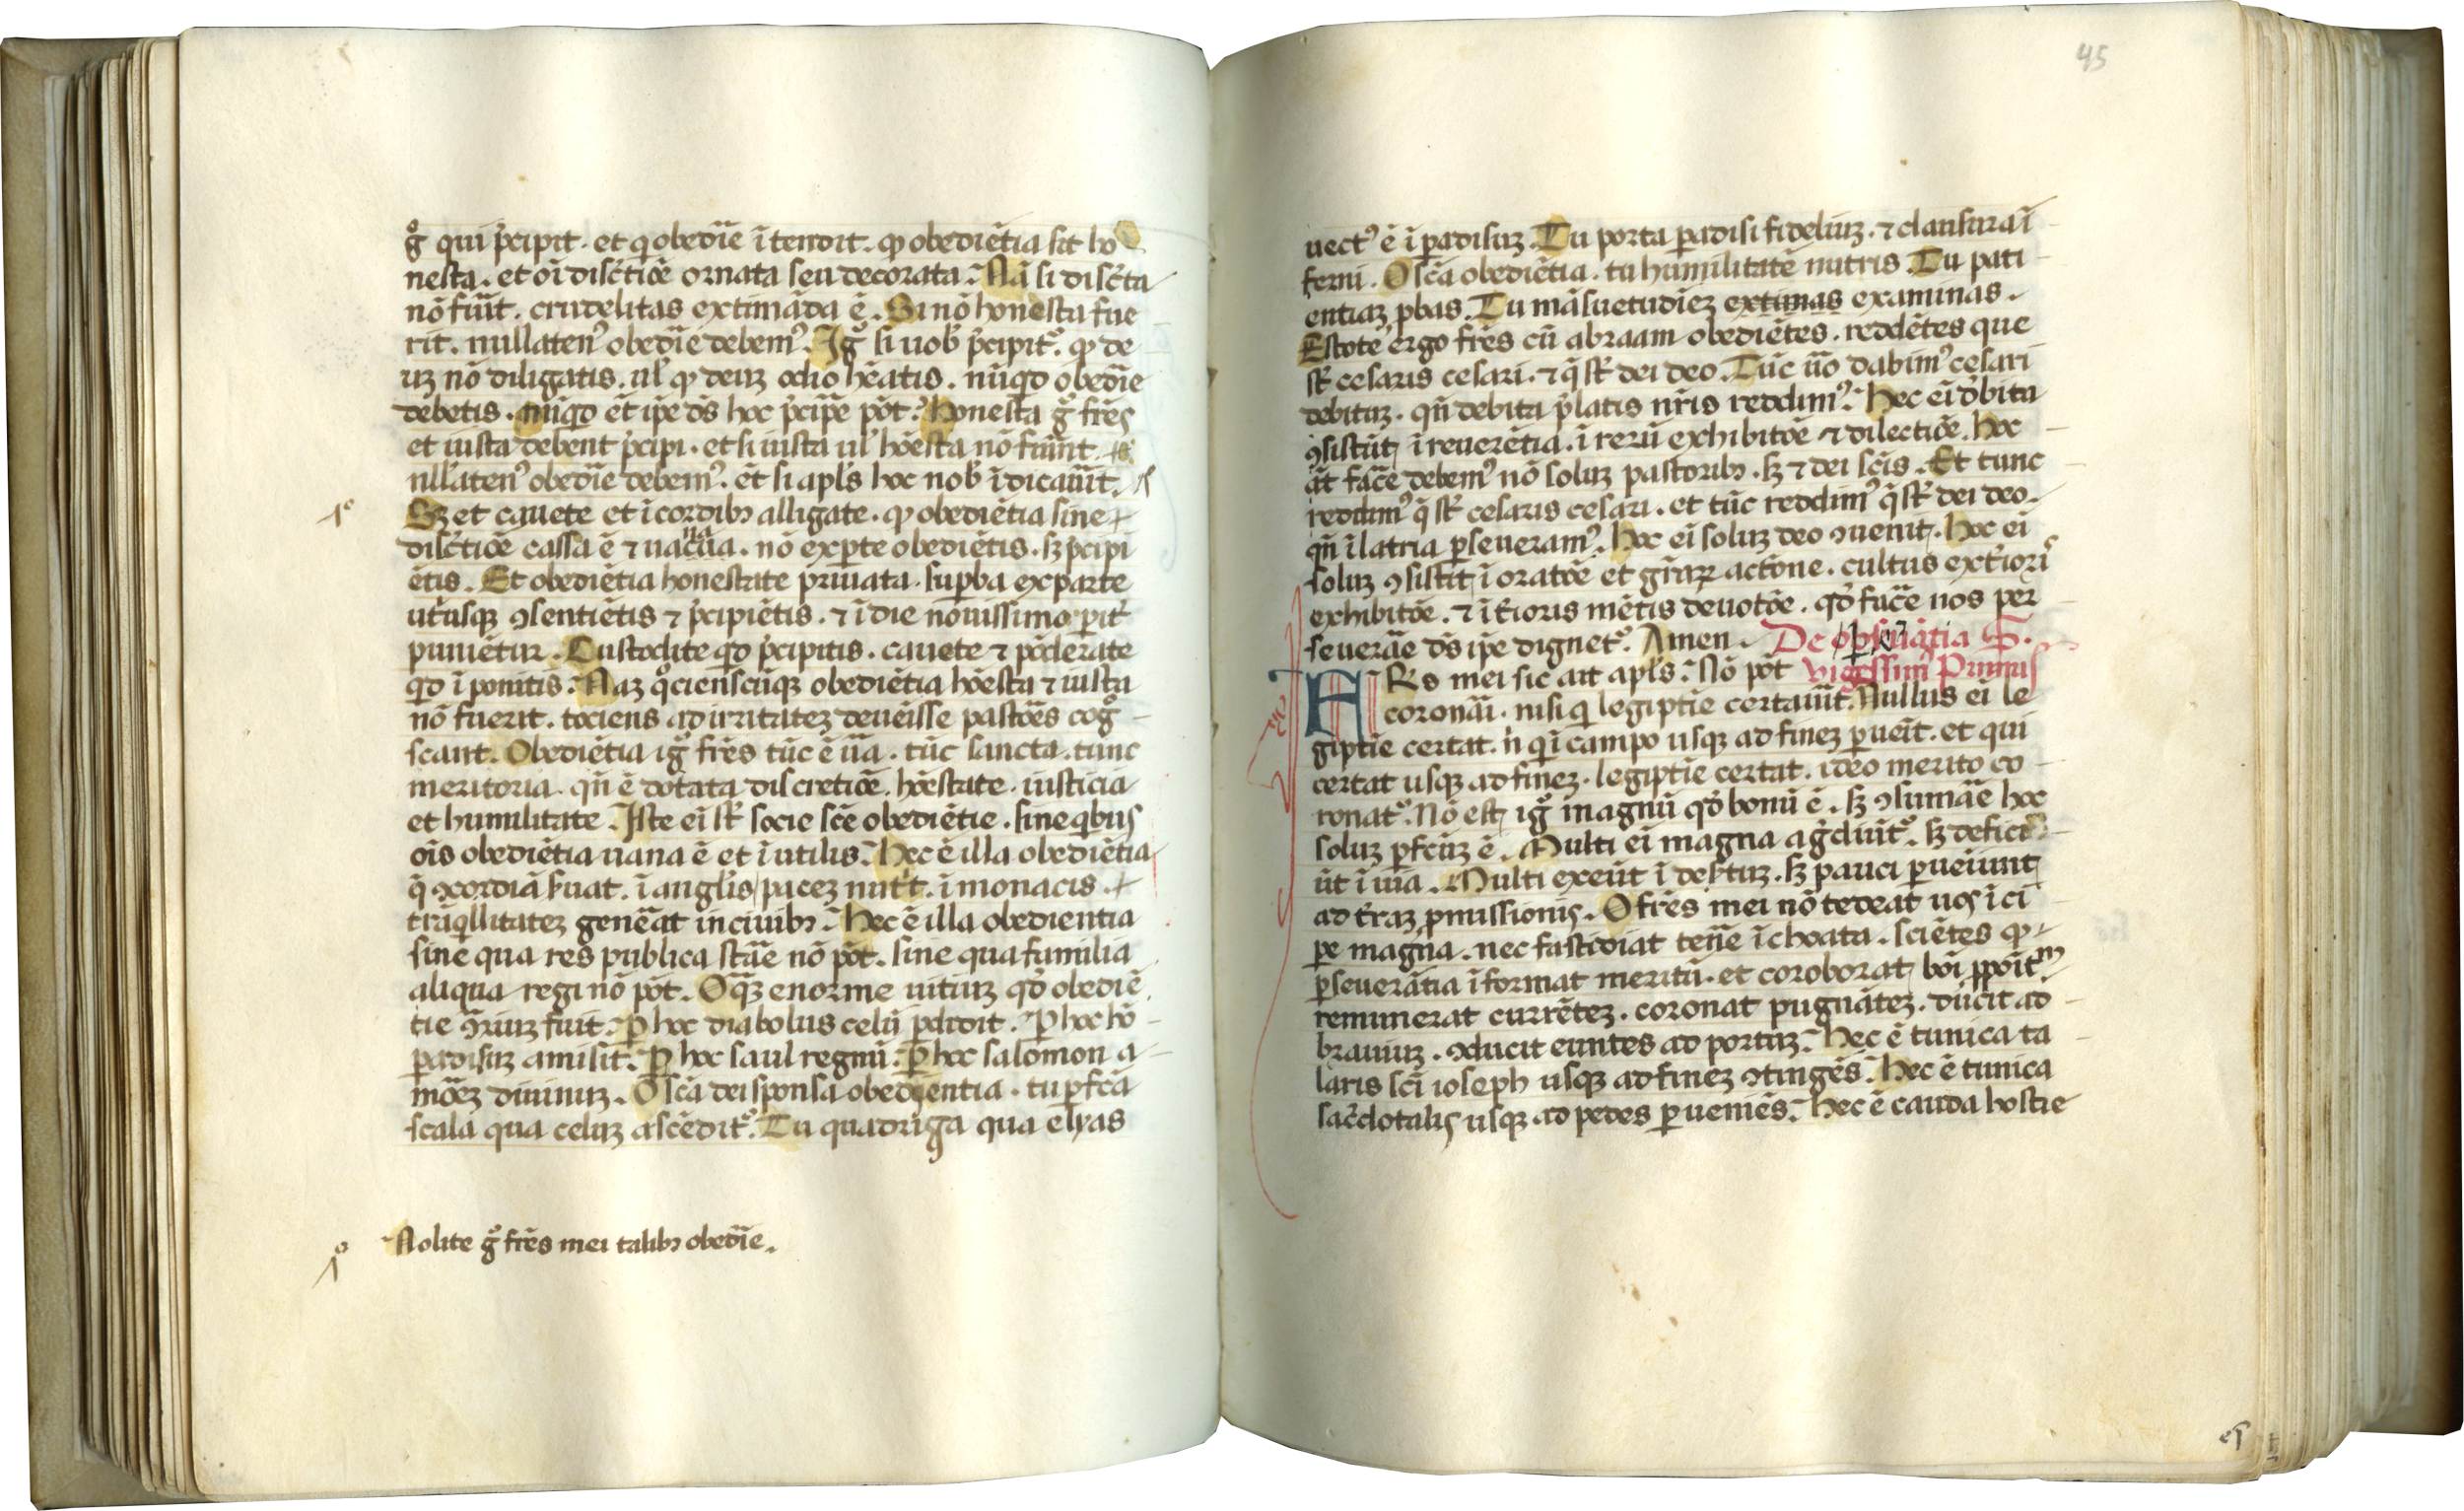 g̊ qui p̓cipit. et q obedīe ītendit. ꝙ obediētia sit ho
nesta. et oī disc̄tiōe ornata seu decorata. Nā si disc̄ta
nō fūit. crudelitas extimāda ē. Si nō honesta fue
rit. nullatenꝰ obedīe debemꝰ. Ig̊ si uob̄ p̓cipit᷑. ꝙ de
uꝫ nō diligatis. ul̄ ꝙ deuꝫ odio hēatis. nūqd obedīe
debetis. nūqd et̄ ip̄e dn̄s hoc p̓cip̄e pōt. Honesta g̊ frēs
et iusta debent p̓cipi. et si iusta ul̄ hōesta nō fūint.
null̄atenꝰ obedīe debemꝰ. et̄ si apl̄s hoc nob̄ īdicaūit.
Sꝫ et cauete et ī cordibꝫ alligate. ꝙ obediētia sine
disc̄tiōe cassa ē ⁊ uacūa. nō exp̄te obediētis. sꝫ p̓cipi
ētis. Et obediētia honestate priuata. sup̄ba ex parte
ut̓usqꝫ ꝯsentiētis ⁊ p̓cipiētis. ⁊ ī die nouissimo pit̓
puniētur. Custodite qd p̓cipitis. cauete ⁊ pōderate
qd ī ponitis. Naꝫ qͦcienscūqꝫ obediētia hōesta ⁊ iusta
nō fuerit. tociens ad irritateꝫ deuēisse pastōes cog̊
scant. Obediētia ig̊ frēs tūc ē ūa. tūc sancta. tunc
meritoria. qn̄ ē dotata discretiōe. hōestate. iusticia
et humilitate. Iste ei̅ st̄ socie scē obediētie. sine qibus
oīs obediētia uana ē et ī utilis. Hec ē illa obediētia
q̄ ꝯcordiā s̓uat. ī angl̄is pacez nut̓t. ī monacis
trāq̓llitateꝫ gen̄eat in ciuibꝫ. Hec ē illa obedientia
sine qua res publica stāe nō pōt. sine qua familia
aliqua regi nō pōt. O qꝫ enorme uitiuꝫ qd̓ obediē
tie ꝯ̄riuꝫ fuit. ꝑ hoc diabolus celu̅ pdidit. ꝑ hoc hō
padisuꝫ amisit. ꝑ hoc saul regnū. ꝑ hoc salomon a
mōeꝫ diuinuꝫ. O scā dei sponsa obedientia. tu pfcā
scala qua celuꝫ ascēdit᷑. Tu quadriga qua elyas
Nolite g̊ frēs mei talibꝫ obedīe.
45
uectꝰ ē ī padisuꝫ. Tu porta padisi fideliuꝫ. ⁊ clausura ī
ferni. O scā obediētia. tu humilitatē nutris. Tu pati
entiaꝫ pbas. Tu māsuetudīeꝫ extimas examinas.
Estote ergo frēs cū abraam obediētes. reddētes que
st̄ cesaris cesari. ⁊ q̄ st̄ dei deo. Tūc ūo dabimꝰ cesari
debituꝫ. qn̄ debita p̓latis nr̄is reddimꝰ. Hec ei̅ dbita
ꝯsistūt ī reuerētia. ī rerū exhibitōe ⁊ dilectiōe. Hoc
āt facē debemꝰ nō soluꝫ pastoribꝫ. sꝫ ⁊ dei scīs. Et tunc
reddimꝰ q̄ st̄ cesaris cesari. et tūc reddimꝰ q̄ st̄ dei deo.
qn̄ ī latria pseueramꝰ. Hoc ei̅ soluꝫ deo ꝯuenit. Hoc ei̅
soluꝫ ꝯsistit ī oratōe et gr̄aꝝ actōne. cultus ext̓iori
exhibitōe. ⁊ īt̓ioris mētis deuotōe. qd̓ facē nos per
seuerāe dn̄s ip̄e dignet᷑. Amen. De pseuātia S.
Frs mei sic ait apl̄s. Nō pōt vigessimꝰ Primus
coronāi. nisi q legiptīe certaūit. Nullus ei̅ le
giptīe certat. n̄ q ī campo usqꝫ ad fineꝫ pueīt. et qui
certat usqꝫ ad fineꝫ. legiptīe certat. ideo merito co
ronat᷑. Nō est ig̊ magnū qd̓ bonū ē. sꝫ ꝯsumāe hoc
soluꝫ pfcūꝫ ē. Multi ei̅ magna ag̓diūt᷑. sꝫ defici
ūt ī uia. Multi exeūt ī des̓tuꝫ. sꝫ pauci pueiunt
ad t̓raꝫ pmissionis. O frēs mei nō tedeat uos ī ci
pe magna. nec fastidiat ten̄e īchoata. sciētes ꝙ
pseuerātia īformat meritū. et coroborat boī ppoītm
remunerat currēteꝫ. coronat pugnāteꝫ. ducit ad
brauiuꝫ. ꝯducit euntes ad portuꝫ. Hec ē tunica ta
laris scī ioseph usqꝫ ad fineꝫ ꝯtingēs. Hec ē tunica
sac̓dotalis usqꝫ ad pedes pueniēs. Hec ē cauda hostie